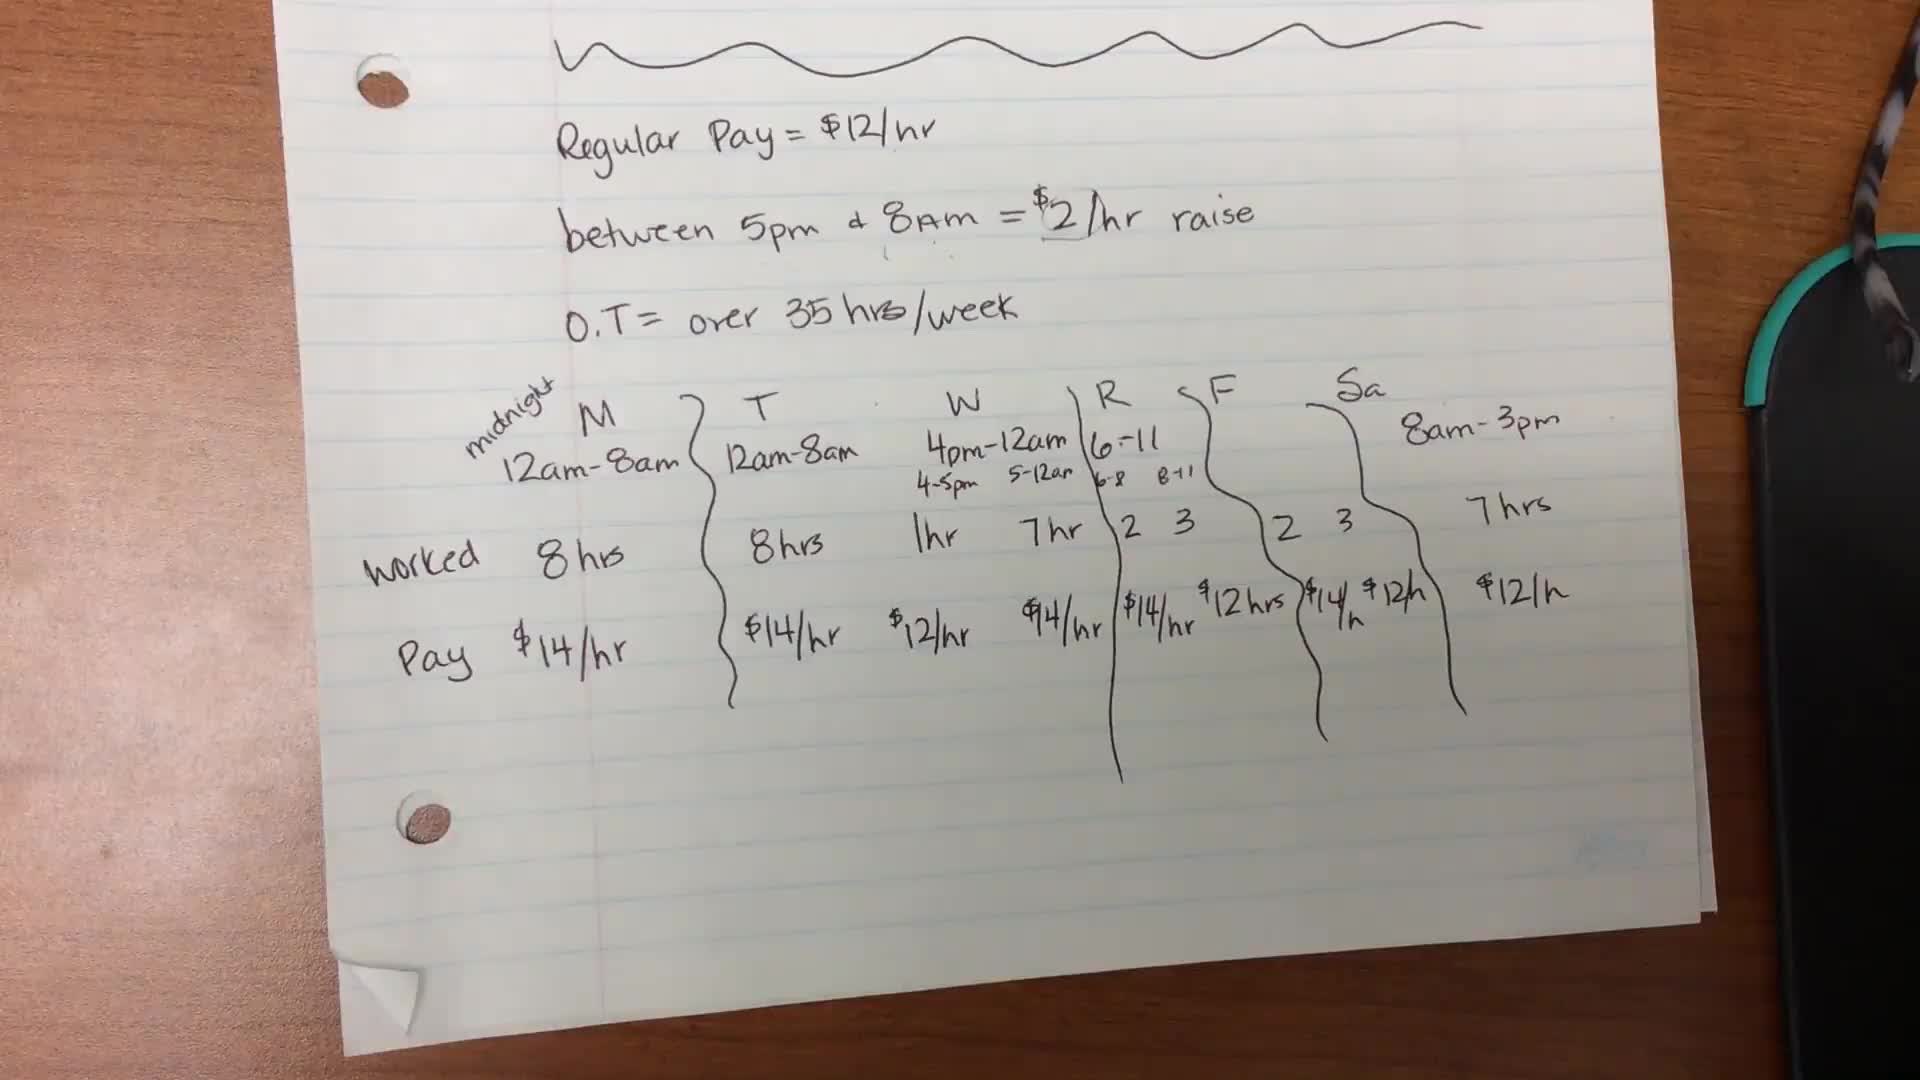 Regular Pay = $12/hr
between 5pm & 8AM = $2/hr raise
O.T = over 35 hrs/week
midnight M T W R F Sa
12am-8am 12am-8am 4pm-12am 6-11 8am-3pm
4-5pm 5-12am 6-8 8-11
worked 8hrs 8hrs 1hr 7hr 2 3 2 3 7hrs
Pay $14/hr $14/hr $12/hr $14/hr $14/hr $12hrs $14/h $12/h $12/h